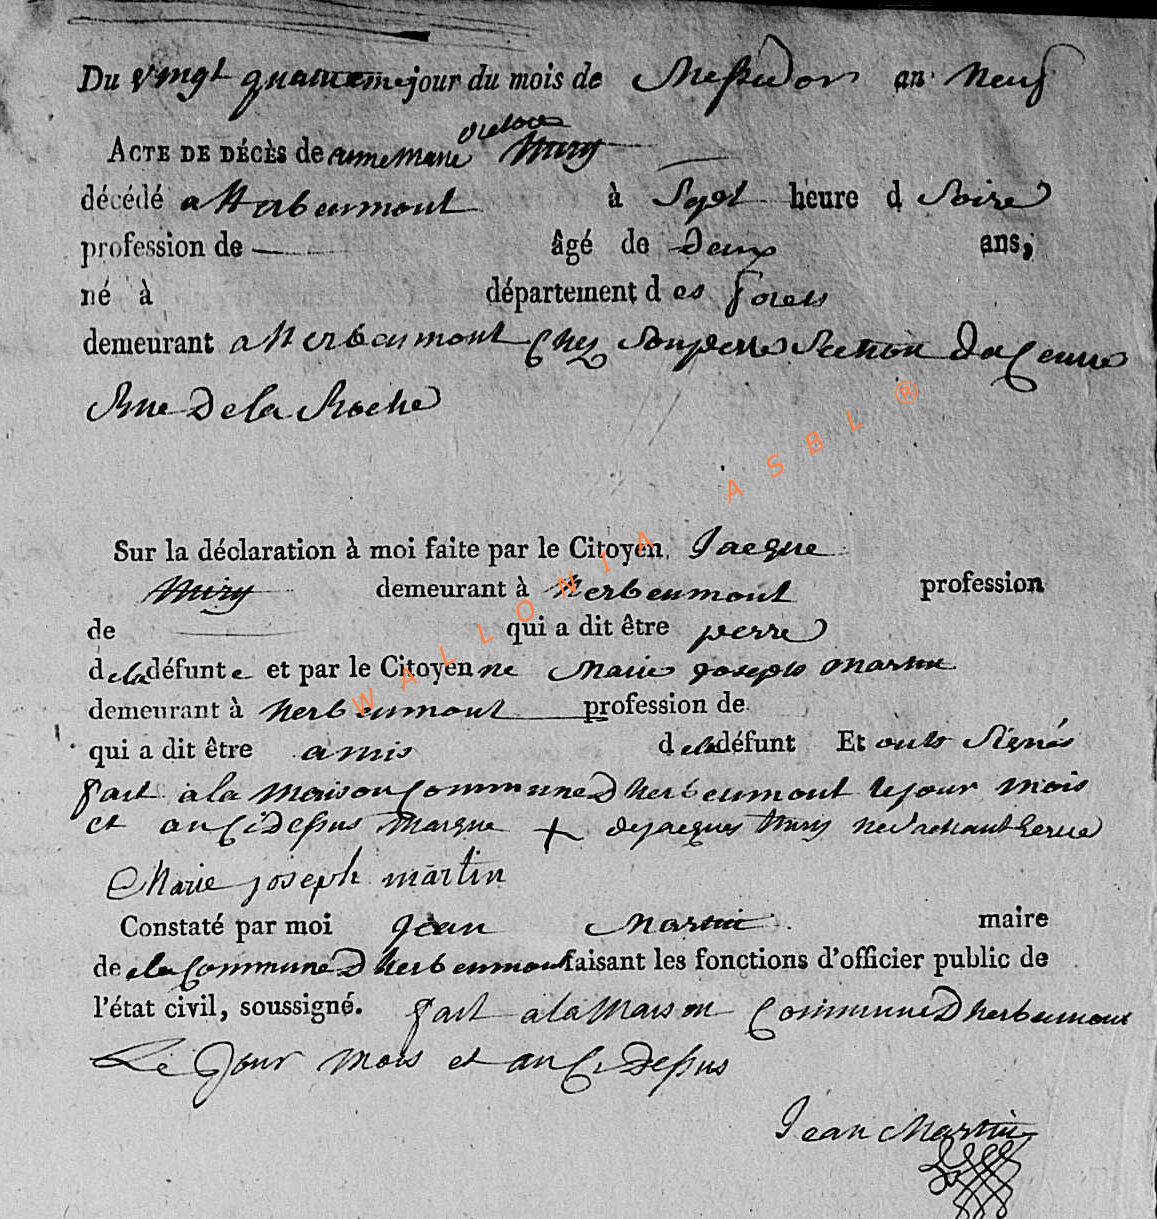 Du vingt quatrieme jour du mois de Messidor an neuf
ACTE DE DÉCÈS de anne Marie
décédé a Herbeumont à Sept heure d Soire
profession de âgé de deux ans,
né à département des forets
demeurant a Herbeumont Chez Son perre Section Da Cenrre
Rue De la Roche
Sur la déclaration à moi faite par le Citoyen Jacque
demeurant à herbeumont profession
de qui a dit être perre
de la défunte et par le Citoyenne Marie joseph Martin
demeurant à herbeumont profession de
qui a dit être amis de la défunt Et onts Signés
fait a la Maison Commune D herbeumont le jour mois
et an Ci Dessus Marque + de jacques ne Sachant Ecrire
Marie joseph martin
Constaté par moi Jean Martin maire
de la Commune D herbeumont faisant les fonctions d'officier public de
l'état civil, soussigné. fait a la Maison Commune D herbeumont
Le Jour Mois et an Ci Dessus
Jean Martin
WALLONIA ASBL ®